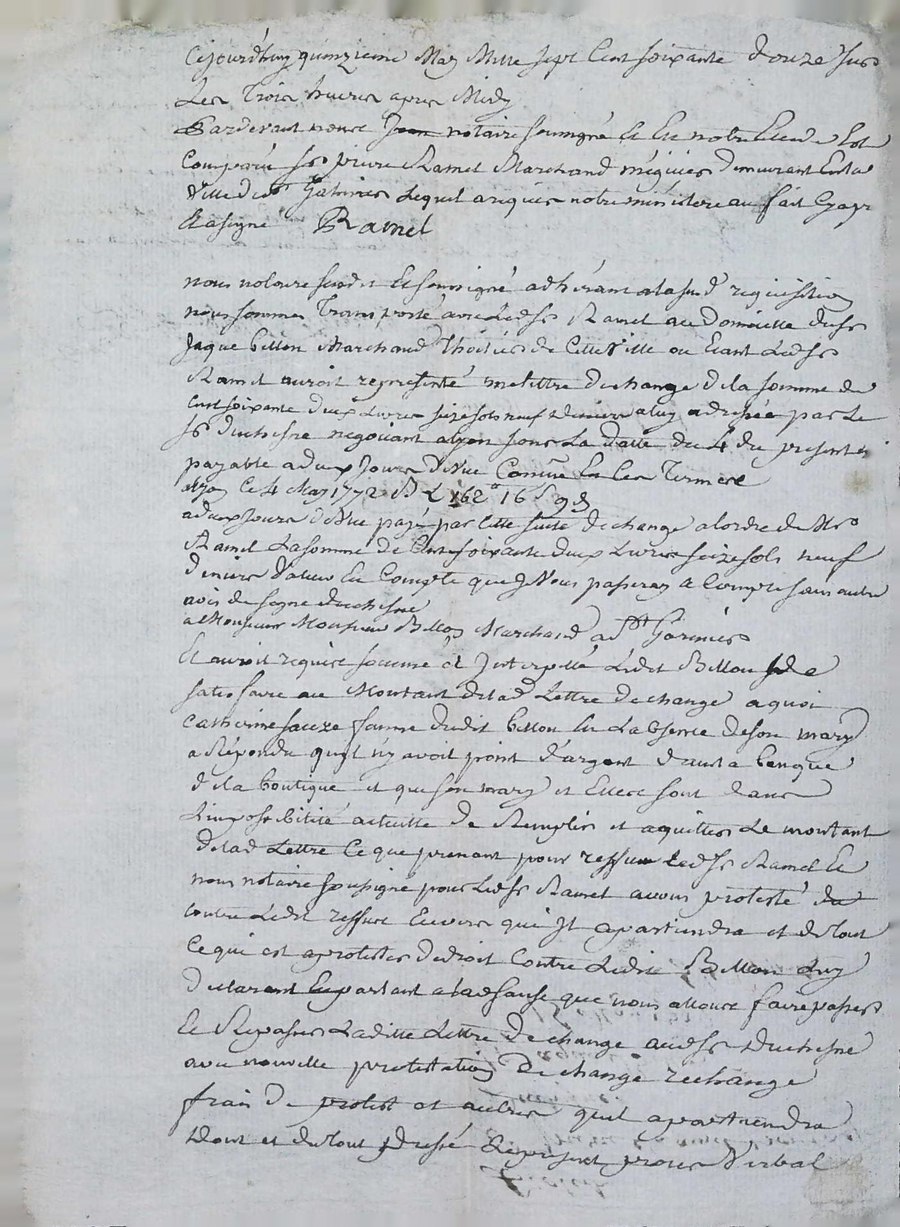 Cejourdhuy quinzieme May Mille sept Cent soixante douze sur
Les Trois heures apres Midy
Pardevant nous notaire soussigné Et En notre Etude Est
Comparu sr pierre Ramel Marchand mégicier demeurant En la
Ville de st Galmier Lequel a requis notre ministere au fait Cy apr
Et a signé Ramel
nous notaire susdit Et soussigné adhérant a la susd requisition
nous sommes Transporté avec Ledsr Ramel au Domicille dusr
Jaque billon Marchand de Cette Ville ou Etant Ledsr
Ramel auroit representé une lettre de change de la somme de
Cent soixante deux Livres seize sols neuf deniers a luy adressée par Le
sr duchesne negociant a lyon sous La datte du 4 du present
payable a deux Jours de Vue Comme En Ces Termes
a lyon Ce 4 May 1772 B L 162 16 s 9 d
a deux Jours de Vue payé par Cette seule de change a lordre de Mr
Ramel La somme de Cent soixante deux Livres seize sols neuf
deniers Valeur En Compte que Vous passerez a Compte sans autre
avis de signé duchesne
a Monsieur Monsieur Billon Marchand a st Galmier
Et auroit requis sommé et Interpellé Ledit Billon de
satisfaire au Montant de lad Lettre de change a quoi
catherine sauze famme dudit billon En L absence de son mary
a Répondu quil ny avoit point d'argent dans la banque
de la boutique et que son mary et Elle sont dans
L'impossibilité actuelle de Remplir et aquitter Le montant
de lad Lettre Ce que prenant pour reffus Ledsr Ramel Et
nous notaire soussigné pour Ledsr Ramel avons protesté du
contre Ledit reffus Envers qui Il apartiendra et du tout
Ce qui est a protester de droit Contre Ledit Billon Luy
declarant En parlant a lad sauze que nous allons faire passer
Et Repasser Laditte Lettre De change audsr Duchesne
avec nouvelle protestation De change rechange
frais De protest et autres quil apartiendra
Dont et du tout dressé Le present proces Verbal